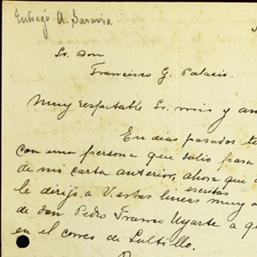 Entregó A.
Sr. Don
Francisco G. Palacio.
Muy respetable Sr. mio y am
En dias pasados te
con una persona que salio para
de mi carta anterior, ahora que
le dirijo a V. estas lineas escritas muy a
de don Pedro Franco Ugarte a q
en el correo de Saltillo.